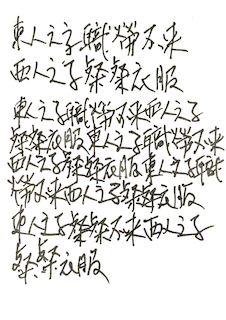 東人之子職勞不來
西人之子粲粲衣服
東人之子職勞不來西人之子
粲粲衣服東人之子職勞不來
西人之子粲粲衣服東人之子職
勞不來西人之子粲粲衣服
東人之子粲粲不來西人之子
粲粲衣服